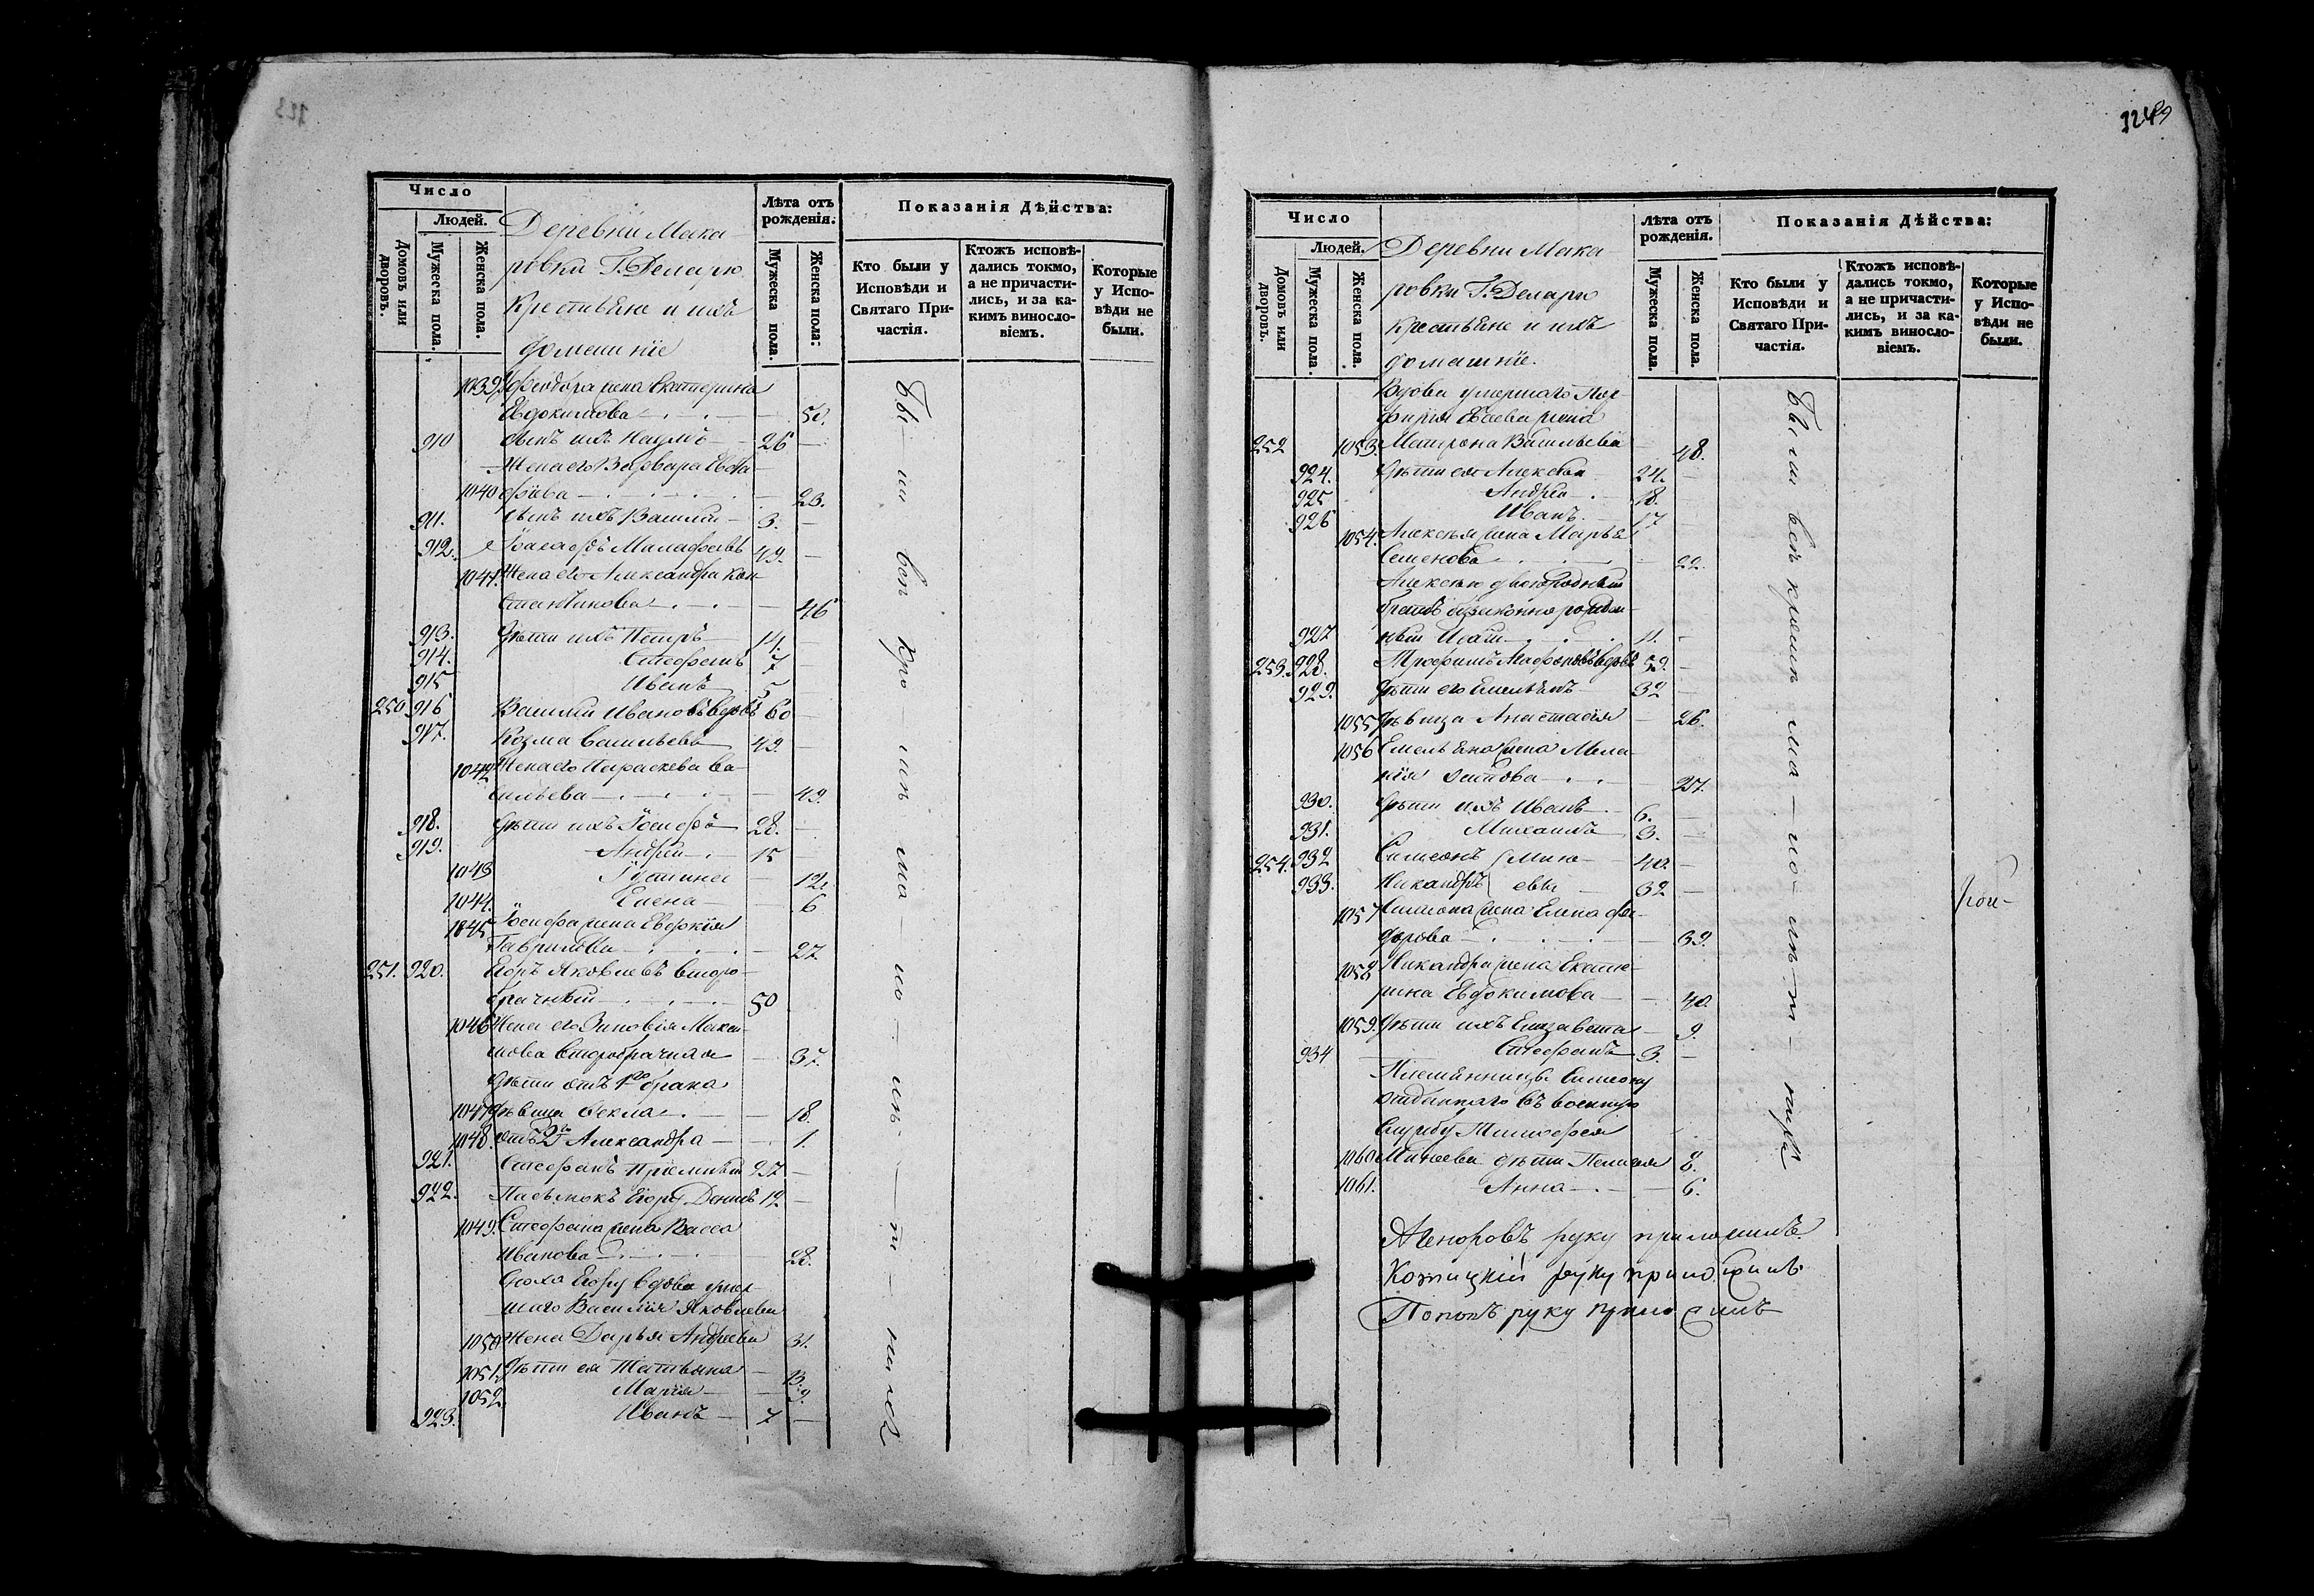 Число
Людей.
Домовъ или дворовъ.
Мужеска пола.
Женска пола.
Деревни Мака
ровки Г. Деларю
Крестьяне и ихъ
домашніе
Лѣта отъ рожденія.
Мужеска пола.
Женска пола:
Показанія Дѣйства:
Кто были у Исповѣди и Святаго Причастія.
Ктожъ исповѣдались токмо, а не причастились, и за какимъ винословіемъ.
Которые у Исповѣди не были.
1039 Феодора жена Екатерина
Евдокимова 50.
910 сынъ ихъ Наумъ 26
Жена его Варвара
1040 23.
911. сынъ ихъ Василій 3.
912. 49.
1041. Жена его Александра Кон-
стантинова 46
913. Дѣти ихъ Петръ 14.
914. Стефанъ 7
915 Иванъ 5
250 916 Василій Ивановъ вдовъ 60
917. Козма Васильевъ 49.
1042 Жена его Параскева Ва-
сильева 49.
918. Дѣти ихъ Іосифъ 28.
919. Андрей 15
1043 Іустинія 12
1044. Елена 6
1045 Іосифа жена Евдокія
Гаврилова 27
251. 920. Егоръ Яковлевъ второ-
брачный 50
1046 Жена его Зиновія Макси-
мова второбрачная 37.
Дѣти отъ 1го брака
1047 дѣвица Ѳекла 18.
1048. отъ 2го Александра 1.
921. Стефанъ пріемышъ 27
922. Пасынокъ Егору Денисъ 12
1049. Стефана жена Васса
Иванова 28.
Егору вдова умер
шаго Василія Яковлева
1050 Жена Дарья Андреева 31.
1051. Дѣти ея Татьяна 13.
1052 Марія 9.
923. Иванъ 7
Были вси кро
Число
Людей.
Домовъ или дворовъ.
Мужеска пола.
Женска пола.
Деревни Мака
ровки Г. Деларю
Крестьяне и ихъ
домашніе.
Лѣта отъ рожденія.
Мужеска пола.
Женска пола.
Показанія Дѣйства:
Кто были у Исповѣди и Святаго Причастія.
Ктожъ исповѣдались токмо, а не причастились, и за какимъ винословіемъ.
Которые у Исповѣди не были.
Вдова умершаго Пор-
фирія жена
252 1053. Матрона Васильева 48.
924. Дѣти ея Алексѣй 24.
925 Андрей 18.
926 Иванъ 17
1054. Алексѣя жена Марья
Семенова 22.
Алексѣю двоюродный
братъ незаконнорожден-
927 ный Исаія 11.
253. 928. вдовъ 52.
929. Дѣти его Емельянъ 32
1055 дѣвица Анастасія 26.
1056 Емельяна жена Мела-
нія 27.
930. Дѣти ихъ Иванъ 6.
931. Михаилъ 3.
254. 932 Симеонъ 40.
933. Никандръ 32
1057 Симеона жена Елена Фе-
дорова 39.
1058 Никандра жена Екате-
рина Евдокимова 40.
1059. Дѣти ихъ Елизавета 9.
934 Стефанъ 3.
Племянницы Симеону
отданнаго въ военную
службу Тимофея
1060 Минеева дѣти Пелагея 8.
1061. Анна 6.
Были вси кромѣ
руку приложилъ
руку приложилъ
Поповъ руку приложилъ